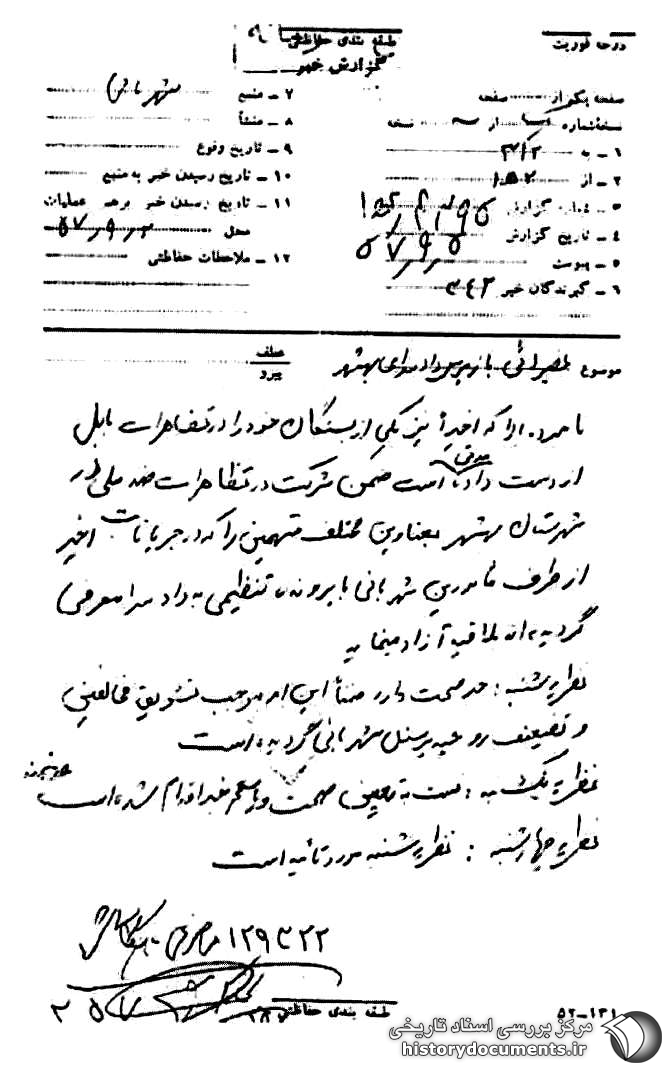 درجه فوریت
طبقه بندی حفاظتی
گزارش خبر
صفحه یکم از صفحه
نسخه شماره از نسخه
۱ - به ۳۱۲
۲ - از
۳ - شماره گزارش
۴ - تاریخ گزارش ۵۷٫۹٫۵
۵ - پیوست
۶ - گیرندگان خبر ۳۴۲
۷ - منبع شهربانی
۸ - منشأ
۹ - تاریخ وقوع
۱۰ - تاریخ رسیدن خبر به منبع
۱۱ - تاریخ رسیدن خبر برهبر عملیات
محل ۵۷٫۹٫۲
۱۲ - ملاحظات حفاظتی
موضوع بازپرس دادسرای بهشهر
عطف
پیرو
نامبرده بالا که اخیراً نیز یکی از بستگان خود را در تظاهرات بابل
از دست داده است ضمن شرکت در تظاهرات ضد ملی در
شهرستان بهشهر بعناوین مختلف متهمینی را که در جریانات اخیر
از طرف مامورین شهربانی با پرونده تنظیمی به دادسرا معرفی
گردیده اند بلاقید آزاد مینماید
نظریه شنبه : خبر صحت دارد ضمناً این امر موجب تشویق مخالفین
و تضعیف روحیه پرسنل شهربانی گردیده است
نظریه یکشنبه : نسبت به تعیین صحت و سقم خبر اقدام شده است
نظریه چهارشنبه : نظریه شنبه مورد تائید است
۱۲۹۳۲۲
طبقه بندی حفاظتی
۵۲-۱۳۱
مرکز بررسی اسناد تاریخی
historydocuments.ir